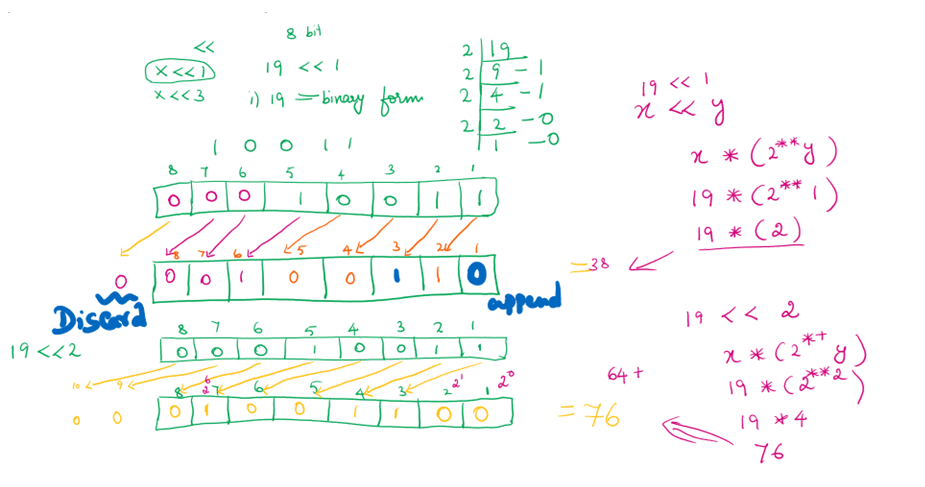 <<
8 bit
x<<1
19 << 1
x<<3
i) 19 = binary form
2 | 19
2 | 9 - 1
2 | 4 - 1
2 | 2 - 0
1 - 0
19 << 1
x << y
x * (2**y)
19 * (2**1)
19 * (2)
1 0 0 1 1
8 7 6 5 4 3 2 1
0 0 0 1 0 0 1 1
8 7 6 5 4 3 2 1
0 0 0 1 0 0 1 1 0
= 38
Discard
append
19 <<2
8 7 6 5 4 3 2 1
0 0 0 1 0 0 1 1
10 9 8 2⁶ 7 6 5 4 3 2 2¹ 1 2⁰
0 0 0 1 0 0 1 1 0 0
= 76
64 +
19 << 2
x * (2*+ y)
19 * (2**2)
19 * 4
76